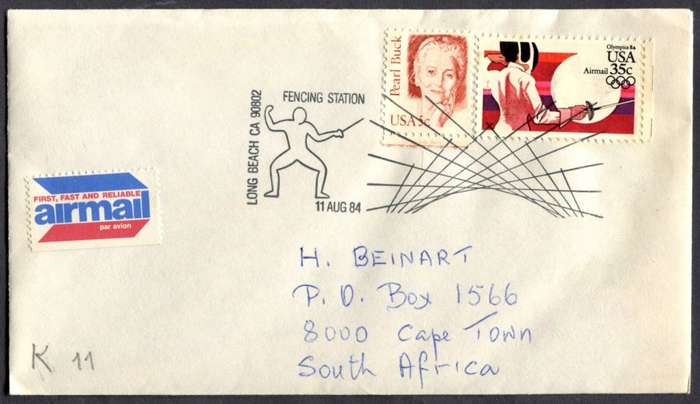 Pearl Buck
USA 5c
Olympics 84
USA
Airmail 35c
FENCING STATION
LONG BEACH CA 90802
11 AUG 84
FIRST, FAST AND RELIABLE
airmail
par avion
H. BEINART
P. O. Box 1566
8000 Cape Town
South Africa
K 11